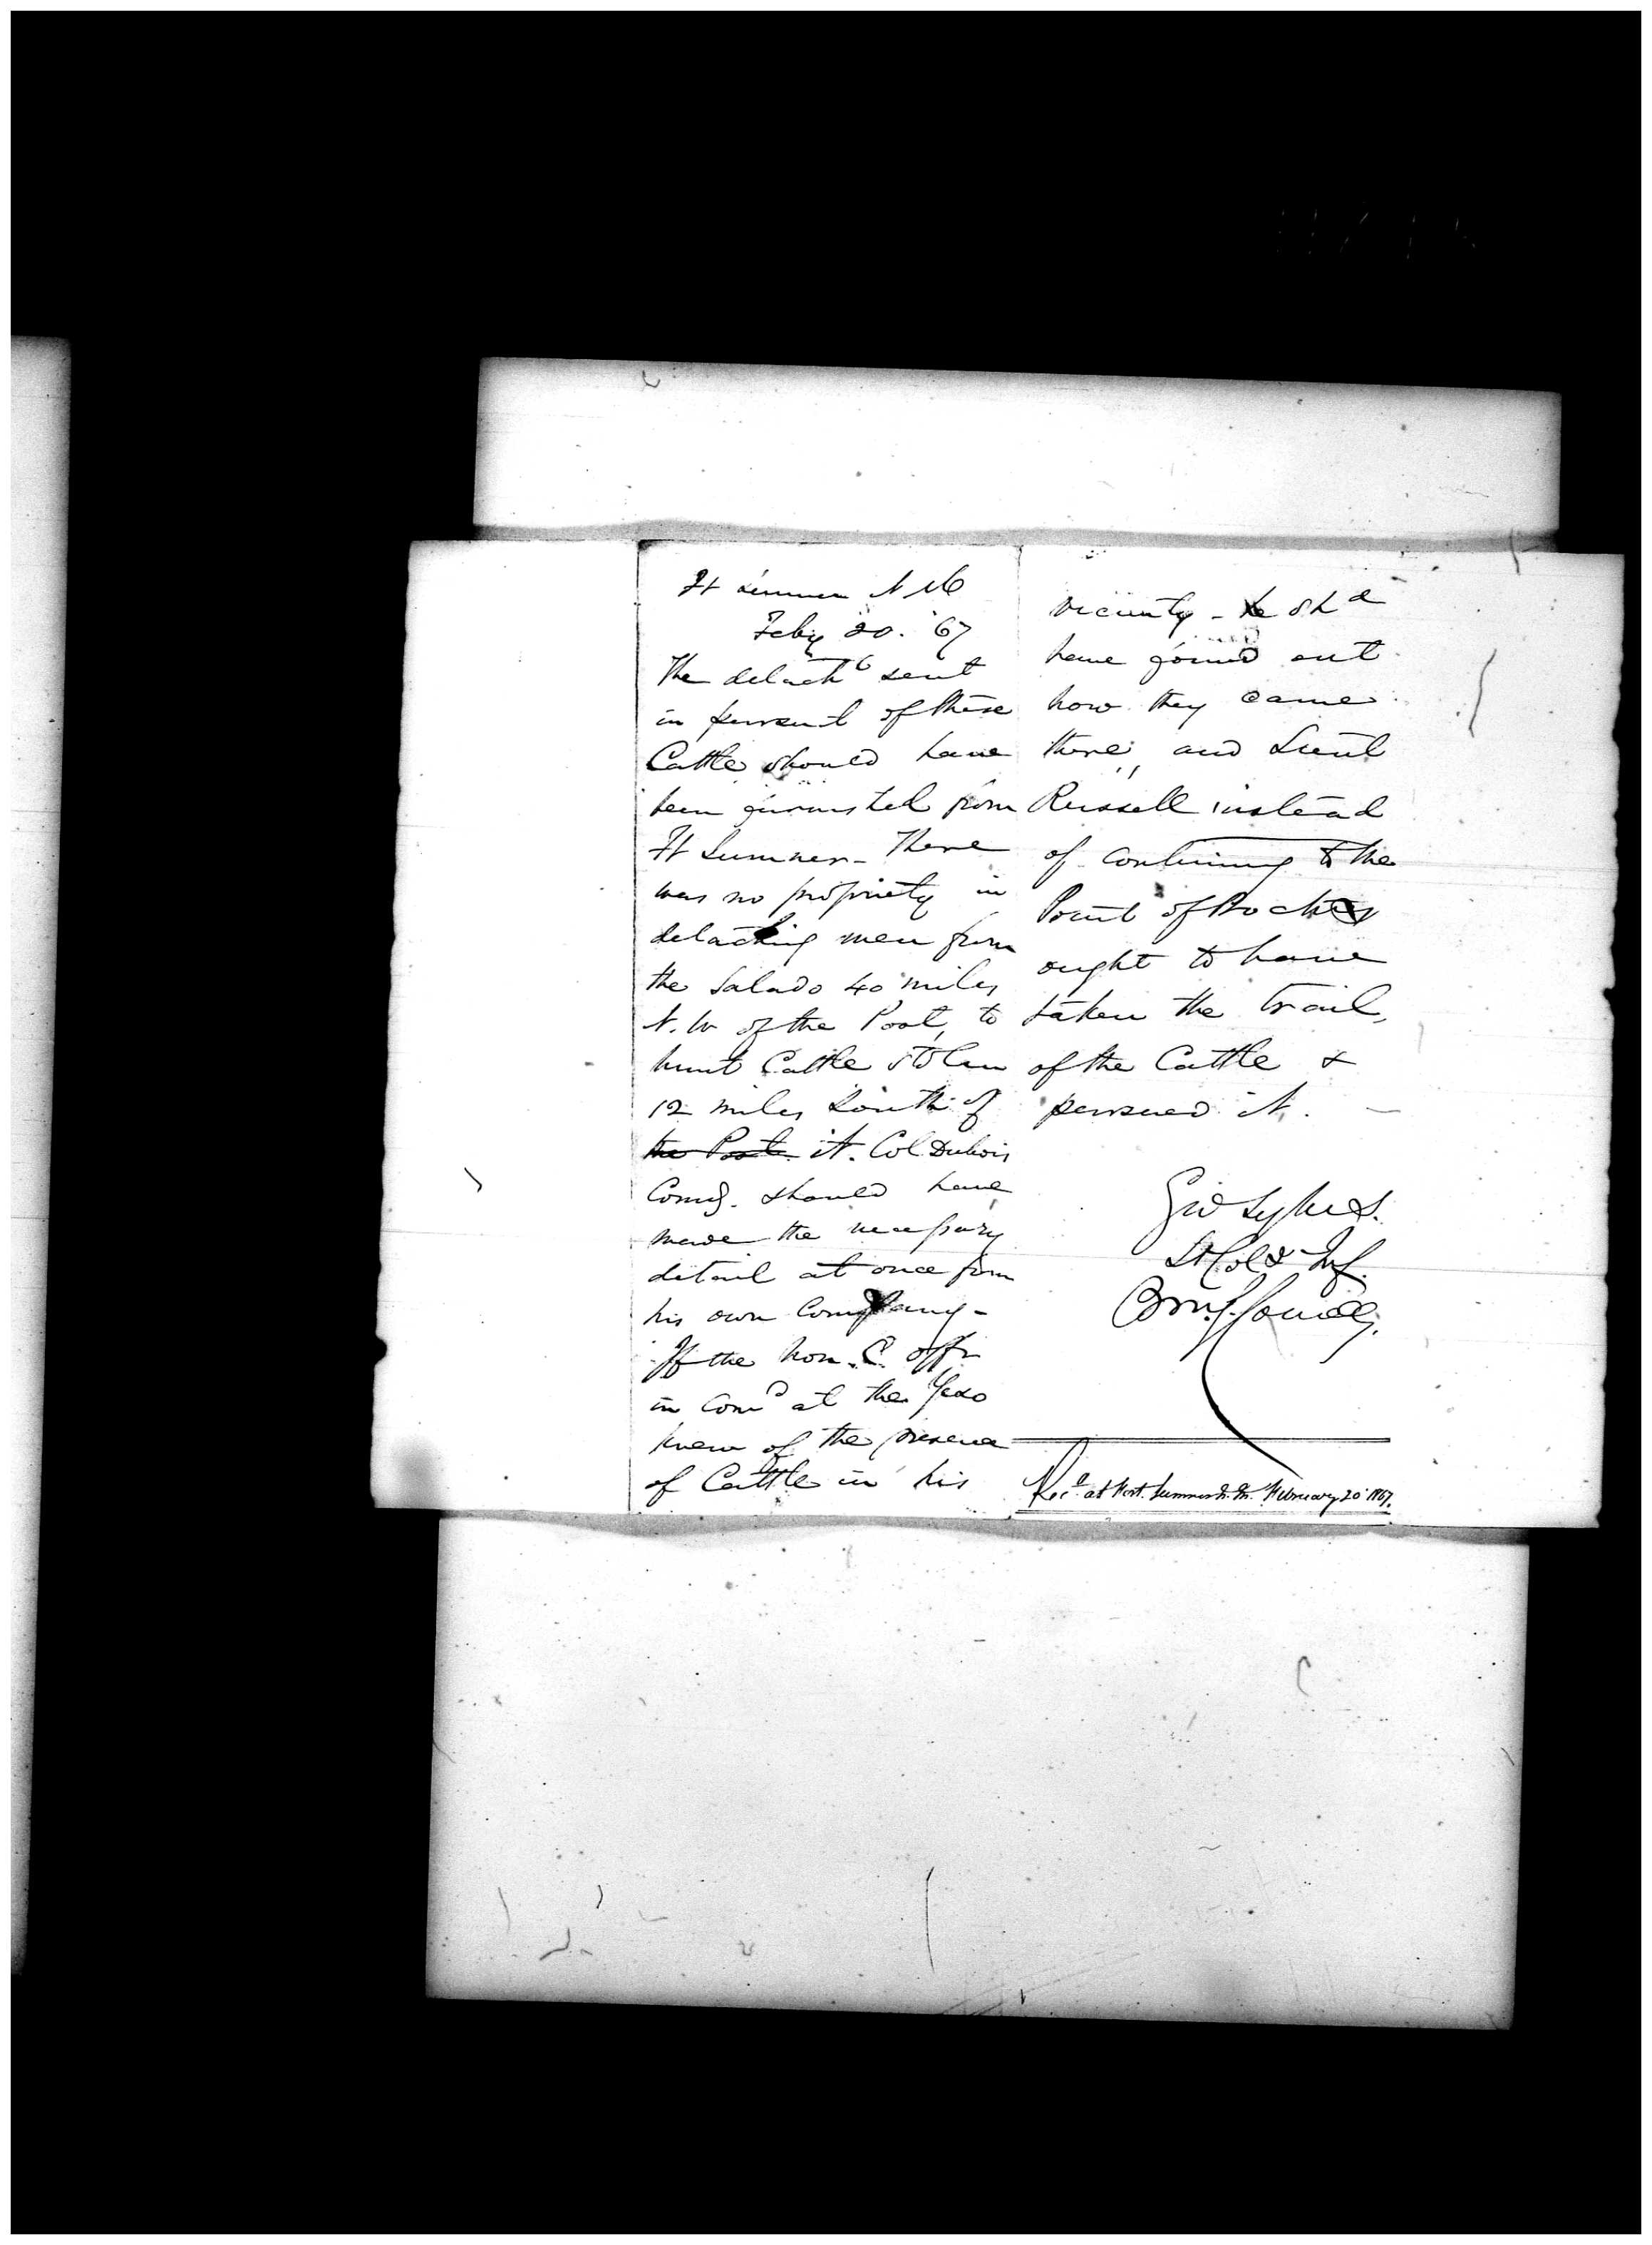 Ft Sumner N M
Feby 20. '67
The detacht sent
in pursuit of these
Cattle should have
been furnished from
Ft Sumner - There
was no propriety in
detaching men from
the Salado 40 miles
N. W of the Post, to
hunt Cattle stolen
12 miles South of
the Post. it. Col Dubois
Comdg. should have
made the necessary
detail at once from
his own Company -
If the non. C. offr
in Comd at the
knew of the presence
of Cattle in his
vicinity - he shd
have found out
how they came
there, and Lieut
Russell instead
of continuing to the
Point of Rocks
ought to have
taken the trail,
of the Cattle &
pursued it.
Geo Sykes.
Lt Col 5 Inf.
Recd at Fort Sumner N. M. February 20 1867.